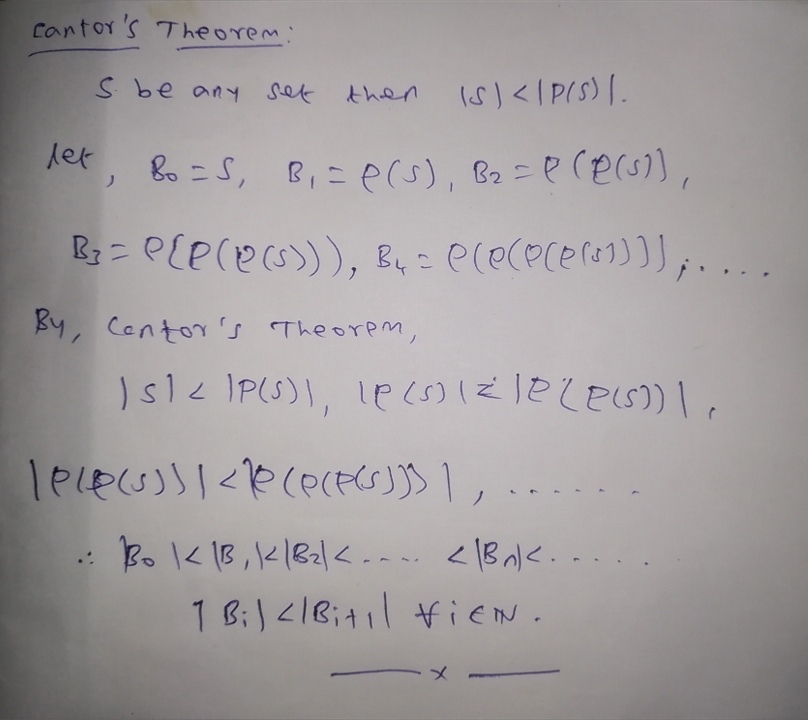 Cantor's Theorem:
S be any set then |S| < |P(S)|.
let, B₀ = S, B₁ = P(S), B₂ = P(P(S)),
B₃ = P(P(P(S))), B₄ = P(P(P(P(S)))),....
By, Cantor's Theorem,
|S| < |P(S)|, |P(S)| < |P(P(S))|,
|P(P(S))| < |P(P(P(S)))|, .......
∴ |B₀| < |B₁| < |B₂| < .... < |Bₙ| < ......
|Bᵢ| < |Bᵢ₊₁| ∀ i ∈ ℕ.
—— x ——